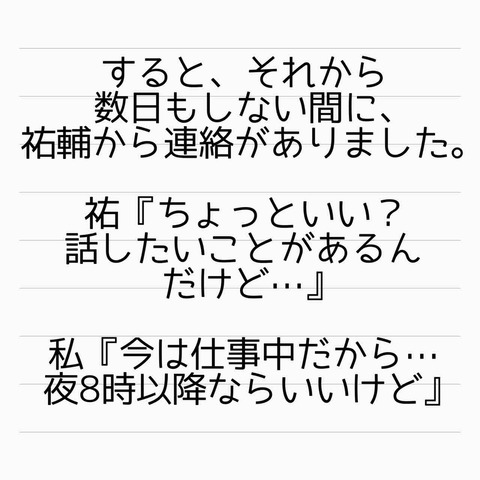 すると、それから
数日もしない間に、
祐輔から連絡がありました。
祐『ちょっといい？
話したいことがあるん
だけど…』
私『今は仕事中だから…
夜8時以降ならいいけど』